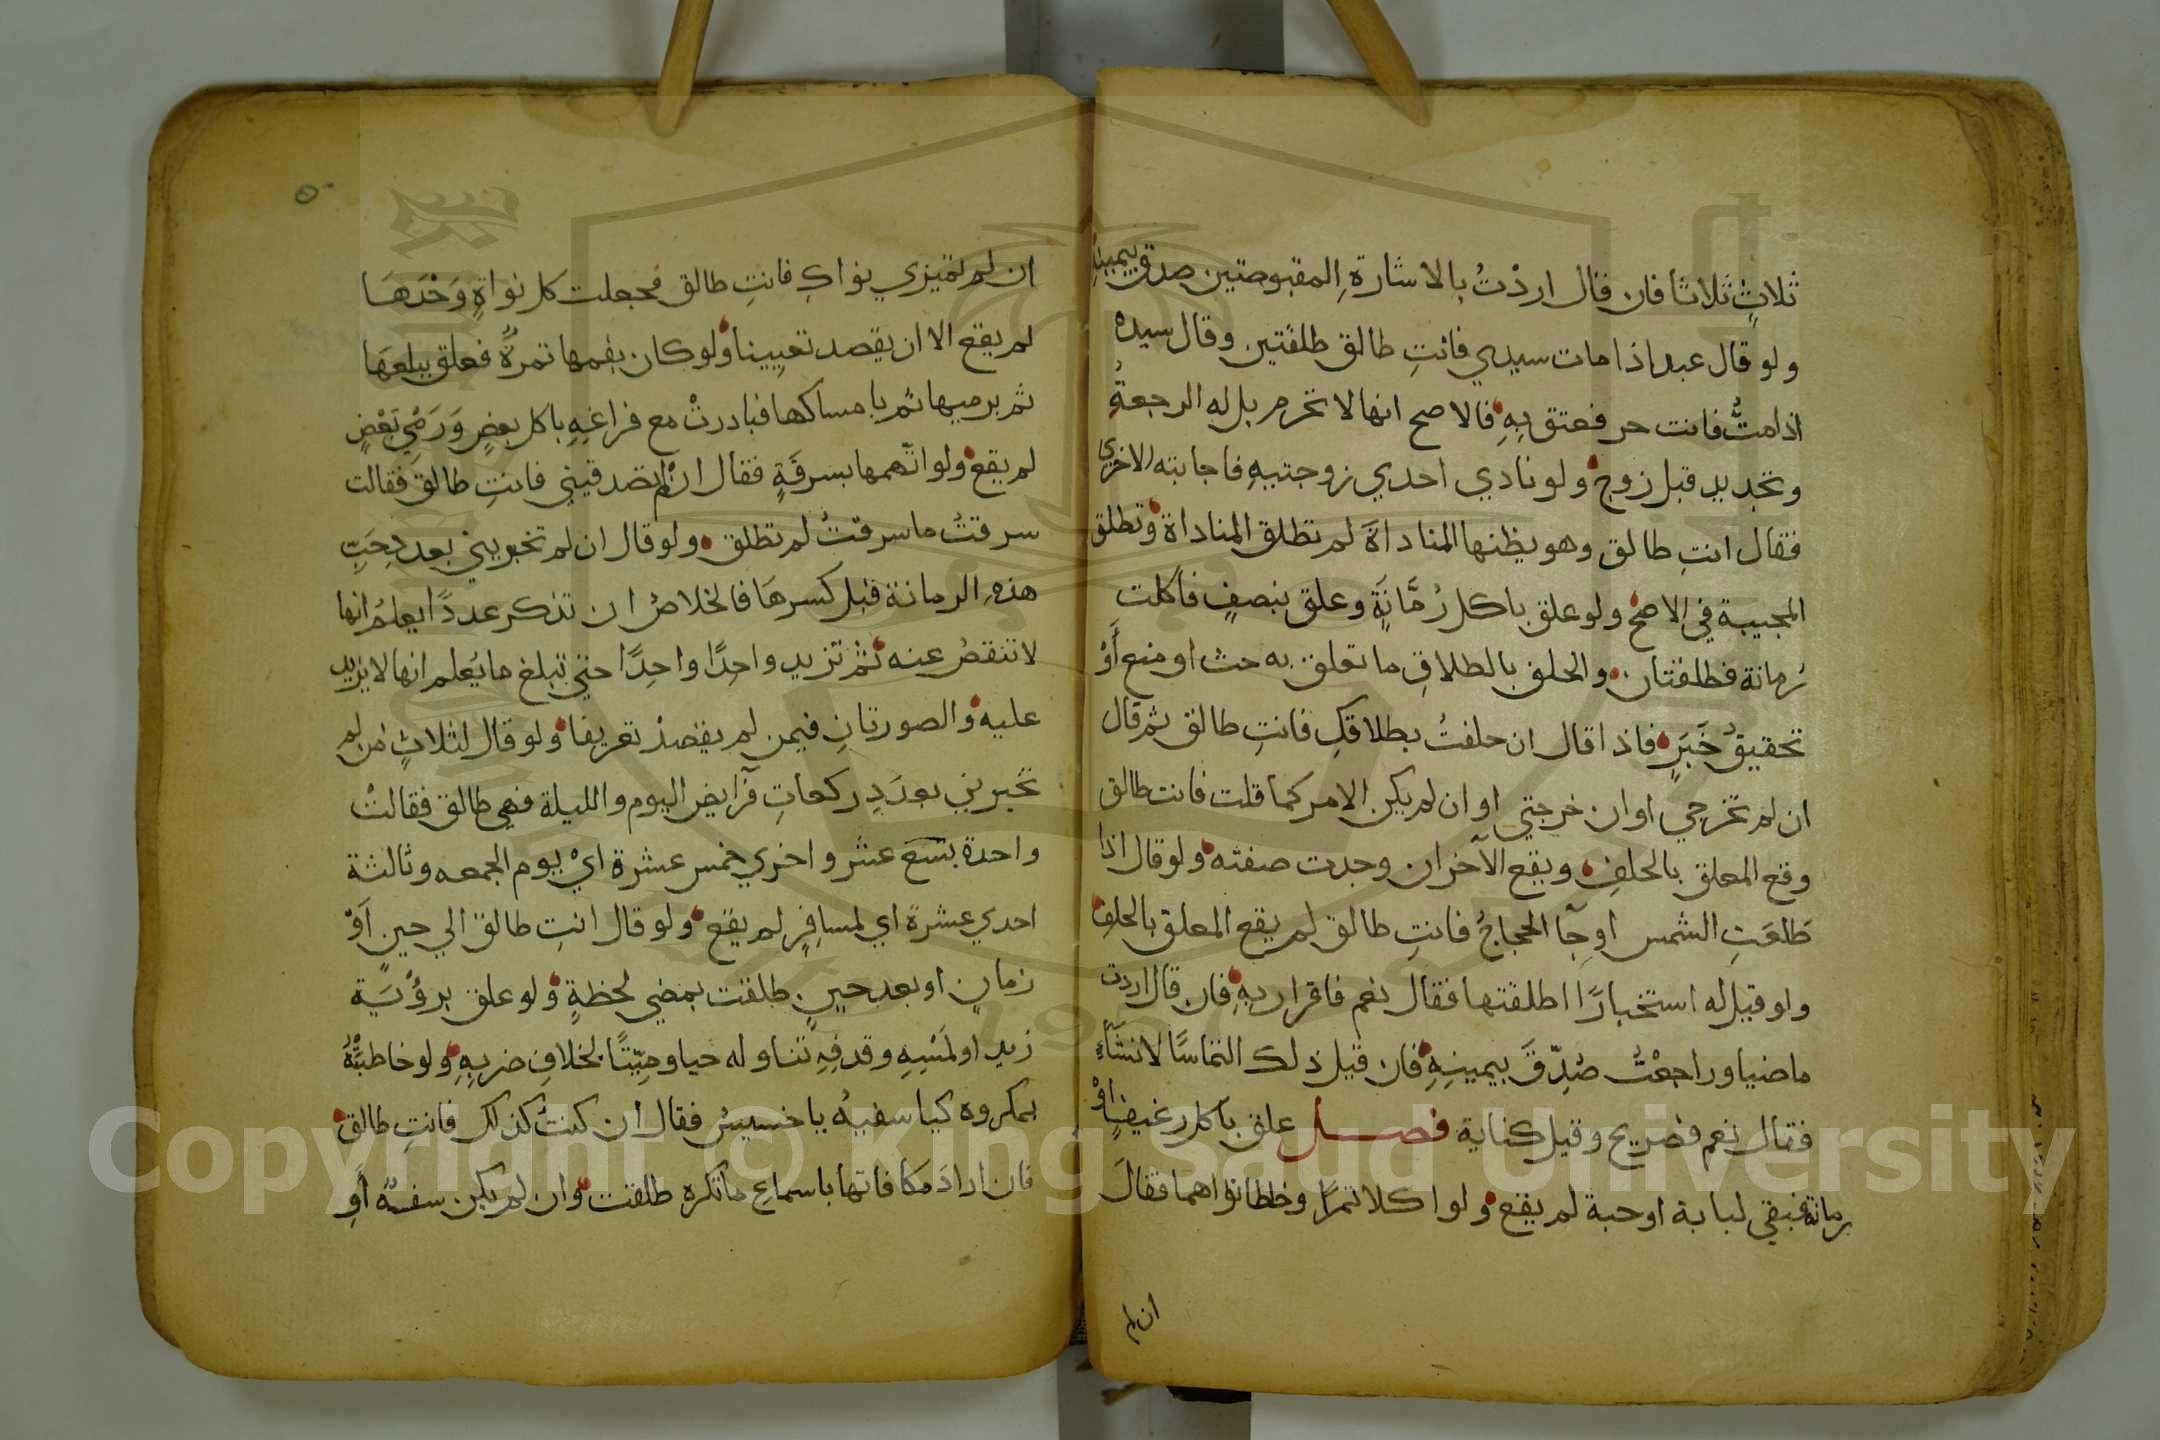 ثلاثٍ ثلاثا فان قال اردْتُ بالاشارةِ المقبوضتين صدق بيمينهِ
ولو قال عبد اذا مات سيدي فانتِ طالق طلقتين وقال سيده
اذا متُّ فانت حر فعتق بِهِ فالاصح انها لا تحرم بل له الرجعةُ
وتجديد قبل زوج ولو نادي احدي زوجتيهِ فاجابته الاخري
فقال انتِ طالق وهو يظنها المناداةَ لم تطلق المناداة وتطلق
المجيبة في الاصح ولو علق باكل رُمَّانَةٍ وعلق بنصفٍ فاكلت
رُمانة فطلقتان والحلف بالطلاقِ ما تعلق به حث او منع أَوْ
تحقيقُ خَبَرٍ فاذا قال ان حلفتُ بطلاقكِ فانتِ طالق ثم قال
ان لم تخرجي او ان خرجتي او ان لم يكن الامر كما قلت فانت طالق
وقع المعلق بالحلفِ ويقع الآخر ان وجدت صفته ولو قال اذا
طَلَعَتِ الشمس او جآ الحجاجُ فانتِ طالق لم يقع المعلق بالحلفِ
ولو قيل له استخبارًا اطلقتها فقال نعم فاقرار بِهِ فان قال اردت
ماضيا وراجعْتُ صُدِّقَ بيمينِهِ فان قيل ذلك التماسًا لانشَاءٍ
فقال نعم فصريح وقيل كناية فصل علق باكل رغيفٍ اوْ
رمانة فبقي لبابة او حبة لم يقع ولو اكلا تمرًا وخلطا نواهما فقالَ
ان لم
ان لم تميزي نواكِ فانتِ طالق فجعلت كل نواةٍ وَحْدَهَا
لم يقع الا ان يقصد تعيينا ولو كان بفمها تمرةٌ فعلق ببلعَها
ثم برميها ثم بامساكها فبادرتْ مع فراغِهِ باكل بعضٍ وَرَمْيِ بَعْضٍ
لم يقع ولو اتّهمها بسرقَةٍ فقال انْ لم تصدقيني فانتِ طالق فقالت
سرقتُ ما سرقتُ لم تطلق ولو قال ان لم تخبريني بعد دِ حَبِّ
هذهِ الرمانة قبل كسرهَا فالخلاصُ ان تذكر عددًا يعلمُ انها
لا تنقصُ عنه ثم تزيد واحِدًا واحِدًا حتي تبلغ ما يُعلم انها لا يزيد
عليه والصورتانِ فيمن لم يقصدْ تعريفا ولو قال لثلاثٍ من لم
تخبرني بعدَدِ ركعاتِ فرآيض اليوم والليلة فهي طالق فقالتْ
واحدة بسَبعَ عشر واخري خمس عشرة ايْ يوم الجمعه وثالثة
احدي عشرة اي لمسافِرٍ لم يقع ولو قال انتِ طالق الي حين اَوْ
زمانٍ او بعد حينٍ طلقت بمضي لحظةٍ ولو علق برؤْيَة
زيد او لمْسِهِ وقدفِهِ تناوله حيا ومِيّتًا بخلافِ ضربِهِ ولو خاطبَتْهُ
بمكروه كيا سفيهُ يا خسيسُ فقال ان كنتُ كذلك فانتِ طالق
فان ارادَ مكافاتها باسماعِ ما تكره طلقت وان لم يكن سفه اَوِ
Copyright © King Saud University
1957